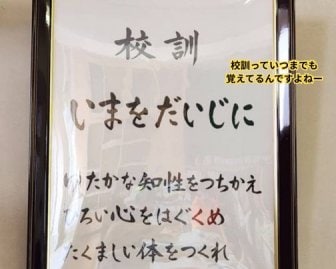 校訓
校訓っていつまでも
覚えてるんですよねー
いまをだいじに
ゆたかな知性をつちかえ
ひろい心をはぐくめ
たくましい体をつくれ